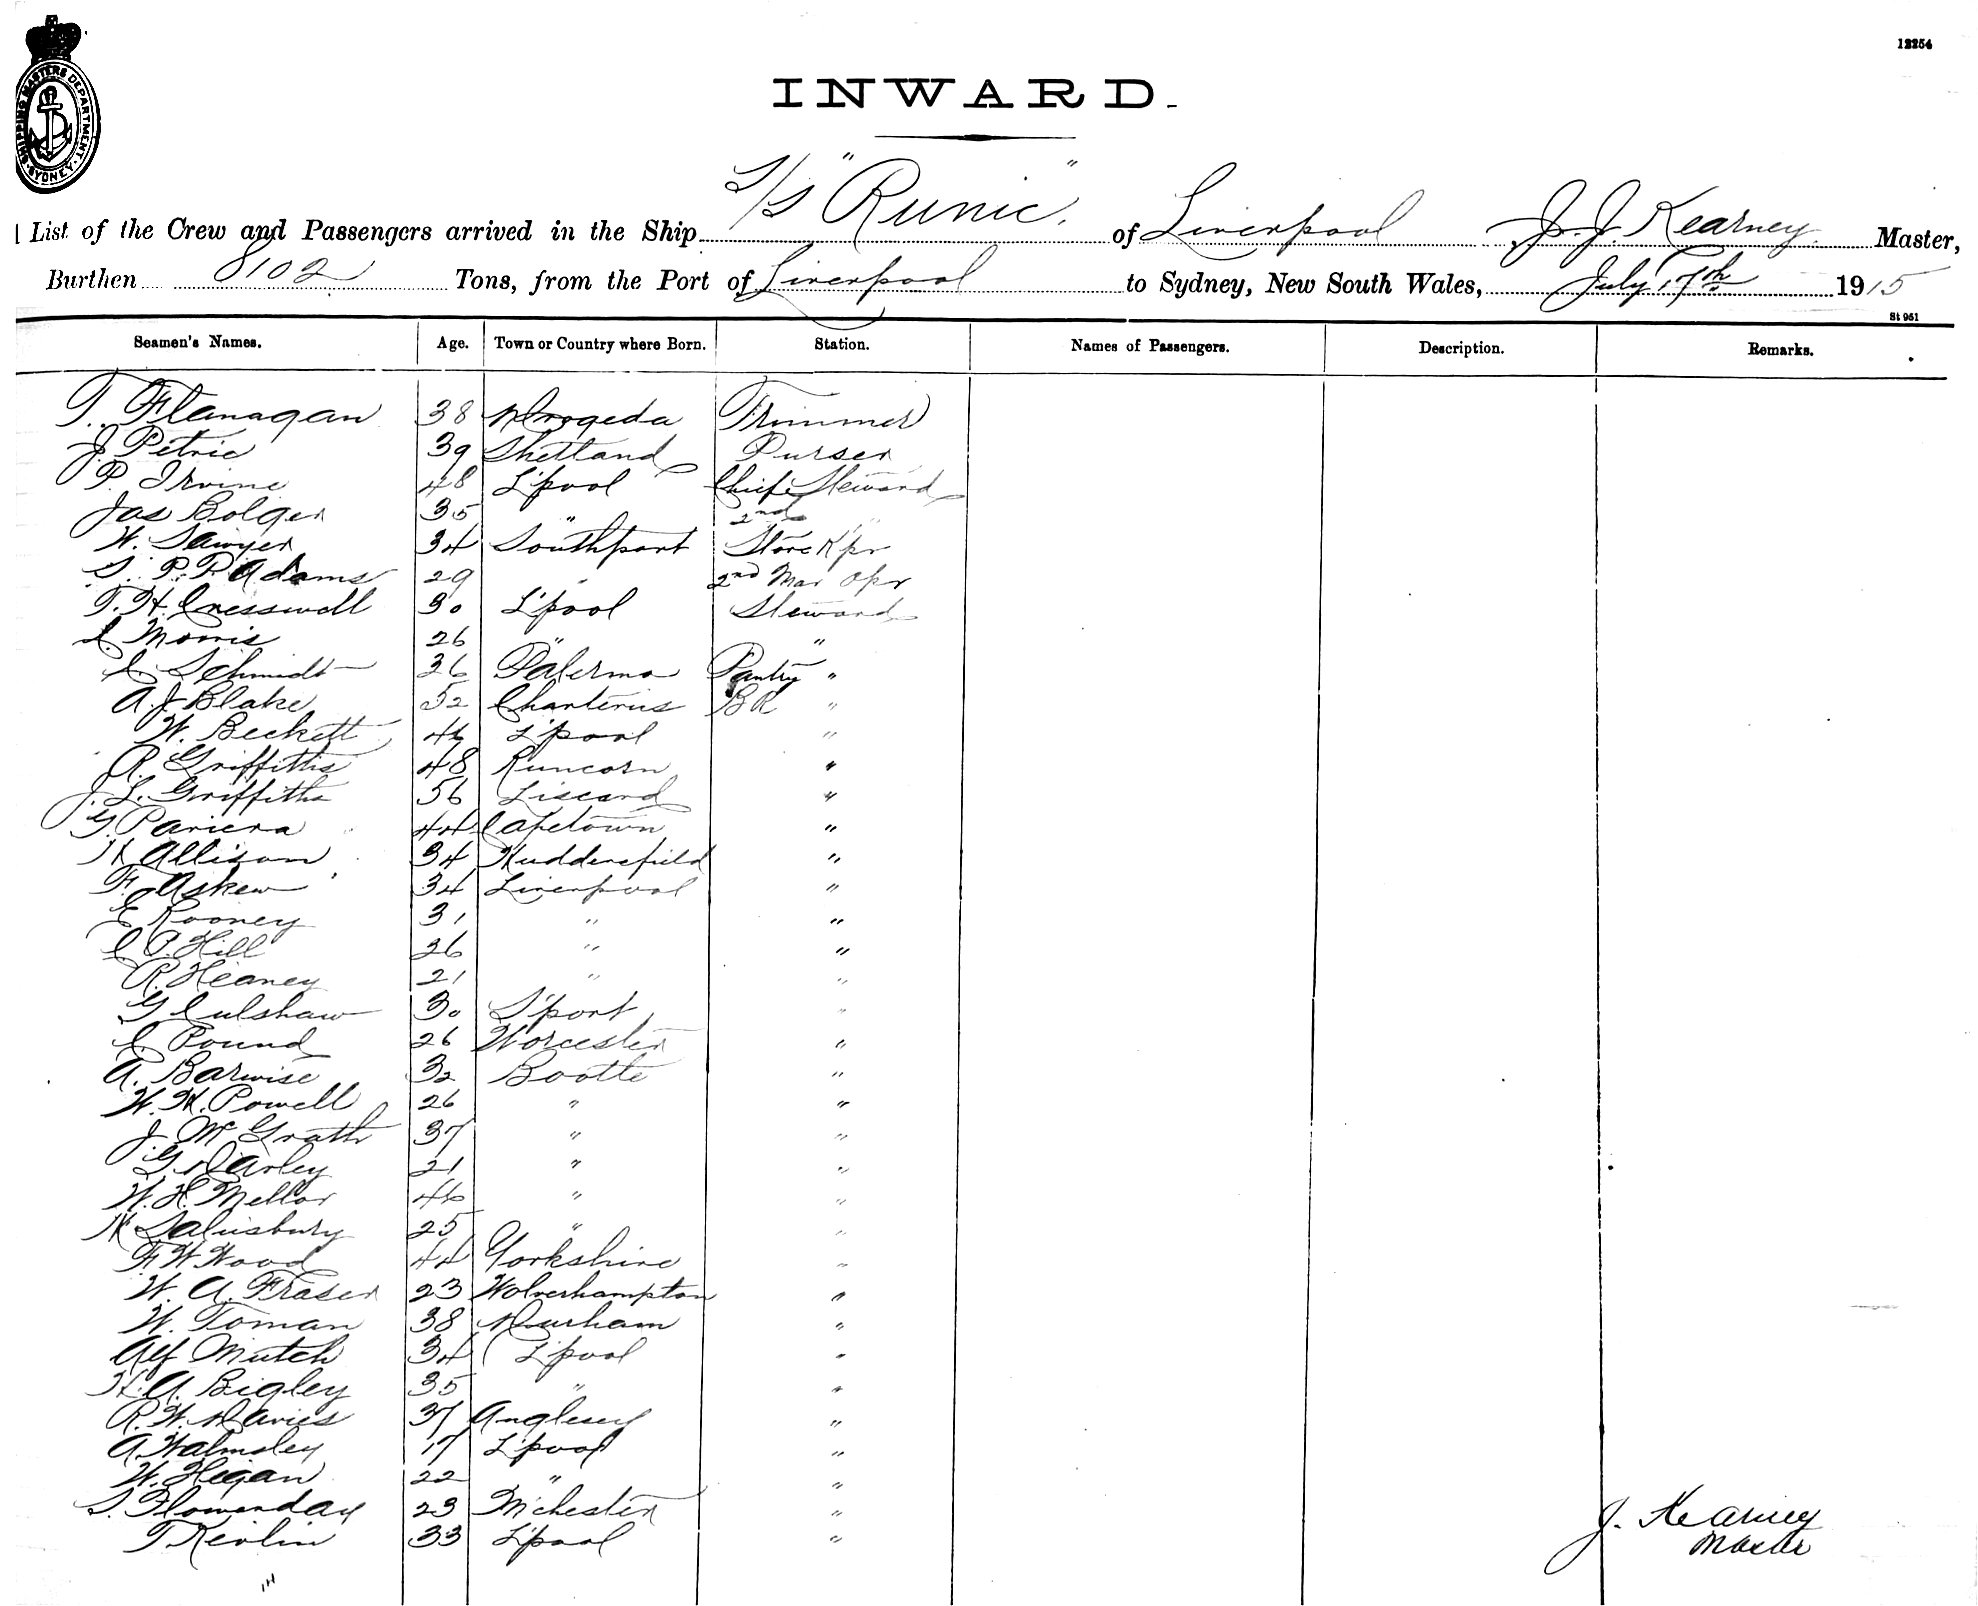 12254
SHIPPING MASTERS DEPARTMENT SYDNEY
INWARD.
List of the Crew and Passengers arrived in the Ship S/S "Runic" of Liverpool J. J. Kearney Master,
Burthen 8102 Tons, from the Port of Liverpool to Sydney, New South Wales, July 17th 1915
St 961
Seamen's Names. Age. Town or Country where Born. Station. Names of Passengers. Description. Remarks.
T. Flanagan 38 Drogeda Trimmer
J. Petrie 39 Shetland Purser
P. Irvine 48 L'pool Chief Steward
Jas Bolger 35 " 2nd "
W. Sawyer 34 Southport Store K'pr
S. P. R Adams 29 " 2nd Mar Opr
T. H. Cresswell 30 L'pool Steward
Morris 26 " "
C Schmidt 36 Palermo Pantry "
A. J Blake 52 Charteris BR "
W. Beckett 46 L'pool "
R. Griffiths 48 Runcorn "
J. L. Griffiths 56 Liscard "
G. Pariera 44 Capetown "
H Allison 34 Huddersfield "
F. Askew 34 Liverpool "
E Rooney 31 " "
C P. Hill 26 " "
R. Heaney 21 " "
G Culshaw 30 S'port "
C. Pound 26 Worcester "
A. Barwise 32 Bootle "
W. H. Powell 26 " "
J. McGrath 37 " "
G. Darley 21 " "
W. H. Mellor 46 " "
H Salusbury 25 " "
F W Wood 44 Yorkshire "
W. A. Fraser 23 Wolverhampton "
W. Toman 38 Durham "
Alf Mutch 34 L'pool "
H. A. Bigley 35 " "
R. W. Davies 37 Anglesey "
A. Walmsley 17 L'pool "
W. Hegan 22 " "
S. Flowerday 23 M'chester "
T Kevlin 33 L'pool "
J. Kearney
Master